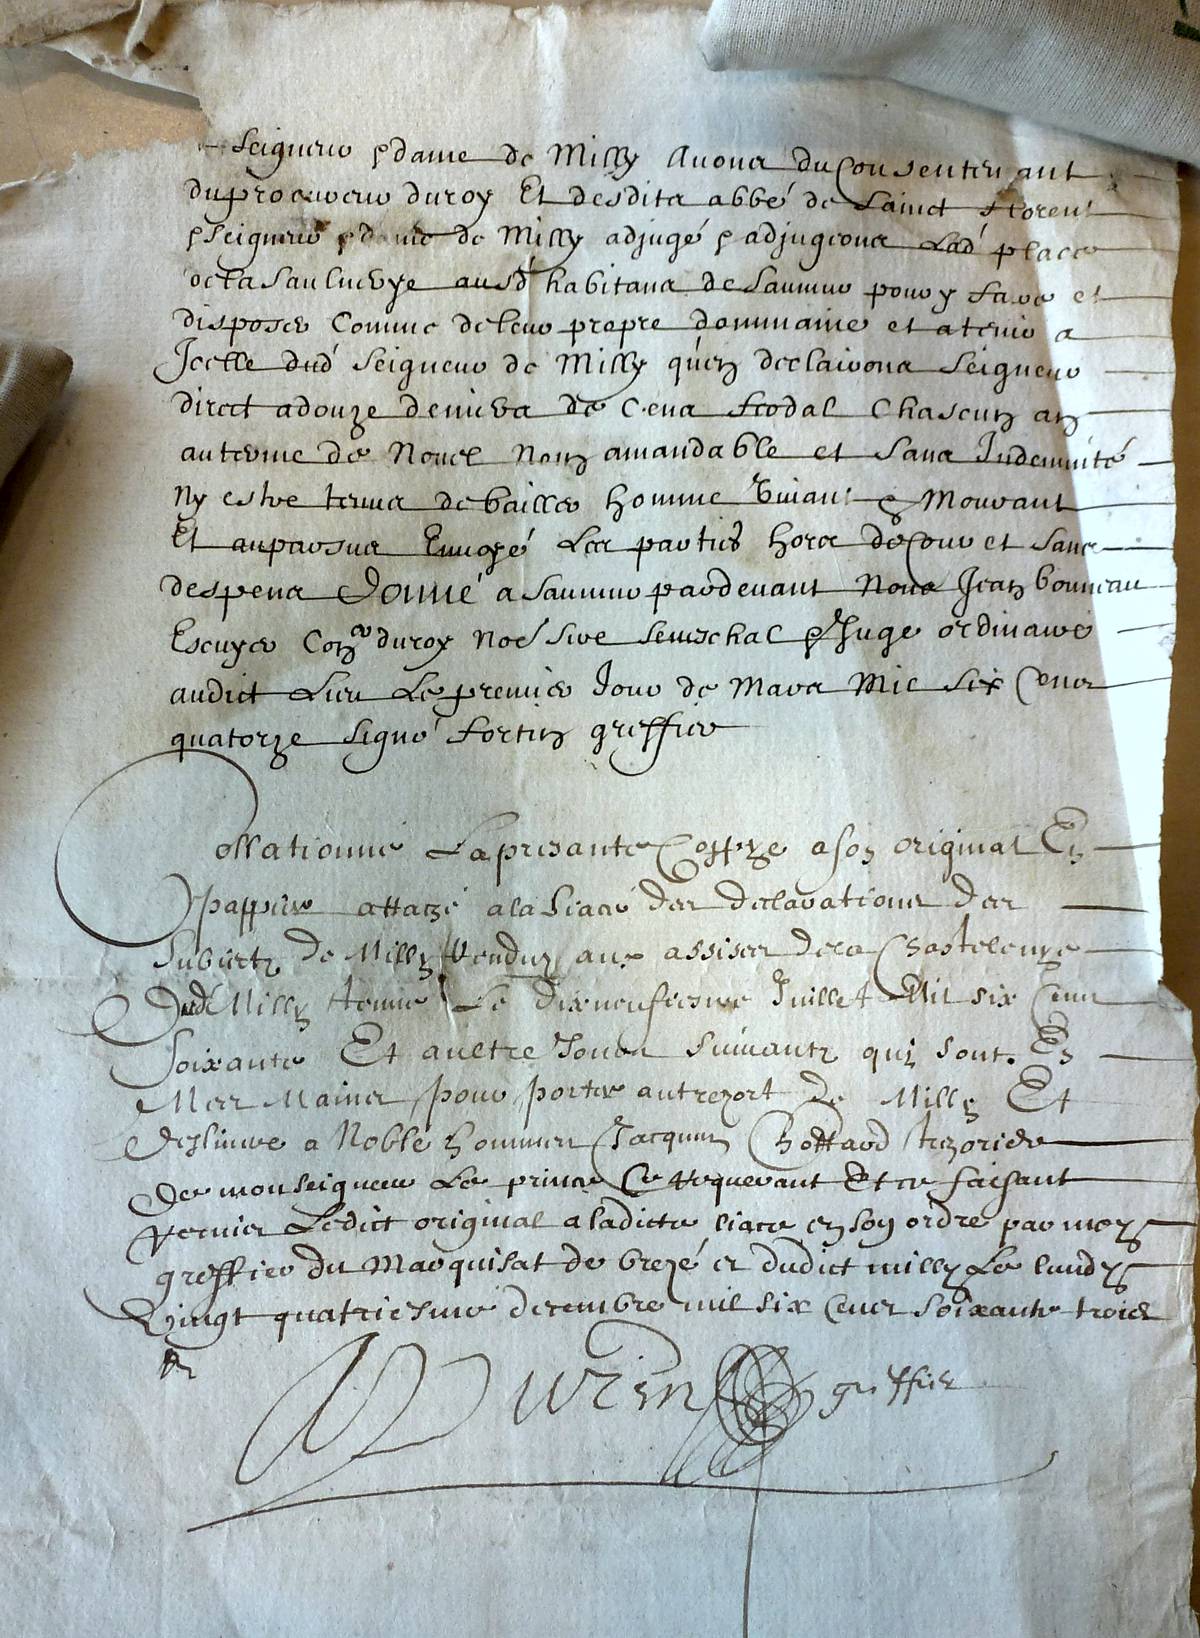 Seigneur & dame de Milly Avons du Consentemant
du procureur du roy Et desdits abbé de Sainct florent
& seigneur & dame de Milly adjugé & adjugeons Lad place
de la Saulnerye ausd habitans de Saumur pour y faire et
disposer Comme de leur propre dommaine et a tenir a
Jcelle dud Seigneur de Milly qu'en declairons Seigneur
direct a douze deniers de Cens feodal Chascun an
au terme de Nouel Non amandable et sans Indemnité
Ny estre tenus de bailler homme vivant & Mourant
Et au parsus Envoyé Les parties hors de Cour et sans
despens Donné a Saumur par devant Nous Jean bonneau
Escuyer Con.er du roy No.e sire Seneschal & Juge ordinaire
audict Lieu Le premier Jour de Mars Mil six Cens
quatorze Signé fortin greffier
Collationné La presante Coppye a son original En
pappier attaché a la liace des declarations des
Subiects de Milly Rendus aux assises de la Chastelenye
Dud Milly tenue Le dixneufiesme Juillet Mil six Cens
Soixante Et aultre Jours suivants qui sont En
Mes Mains pour porter au trezort de Milly Et
Deslivré a Noble hommes Jacques Chottard trezorier
De monseigneur Le prince Ce Requerant Et ce faisant
Remis Ledict original a ladicte liace en son ordre par moy
greffier du Marquisat de brezé et dudict milly Le lundy
Vingt quatriesme decembre mil six Cens soixante trois
Durin greffier